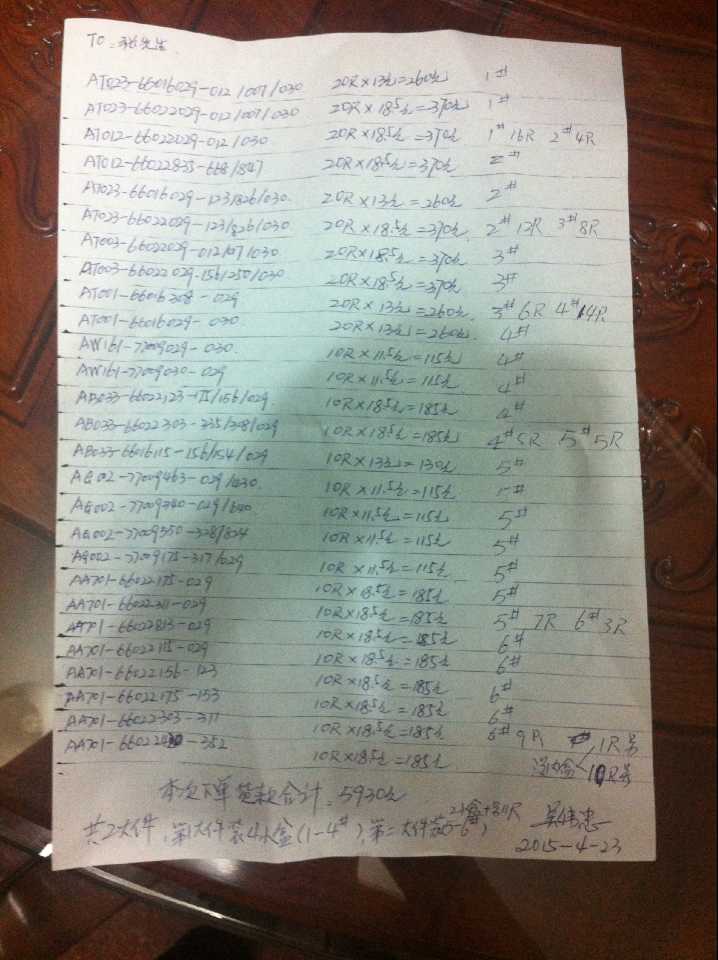 TO:张先生
AT023-66016029-012/007/030 20R×13元=260元 1#
AT023-66022029-012/007/030 20R×18.5元=370元 1#
AT012-66022029-012/030 20R×18.5元=370元 1# 16R 2# 4R
AT012-66022835-668/847 20R×18.5元=370元 2#
AT023-66016029-123/826/030 20R×13元=260元 2#
AT023-66022029-123/826/030 20R×18.5元=370元 2# 12R 3# 8R
AT003-66022029-012/107/030 20R×18.5元=370元 3#
AT003-66022029-156/250/030 20R×18.5元=370元 3#
AT001-66016308-029 20R×13元=260元 3# 6R 4# 14R
AT001-66016029-030 20R×13元=260元 4#
AW161-77009029-030 10R×11.5元=115元 4#
AW161-77009030-029 10R×11.5元=115元 4#
AB033-66022123-175/156/029 10R×18.5元=185元 4#
AB033-66022303-335/308/029 10R×18.5元=185元 4# 5R 5# 5R
AB033-66016115-156/154/029 10R×13元=130元 5#
AG002-77009463-029/830 10R×11.5元=115元 5#
AG002-77009740-029/640 10R×11.5元=115元 5#
AG002-77009550-328/824 10R×11.5元=115元 5#
AG002-77009175-317/029 10R×11.5元=115元 5#
AA701-66022175-029 10R×18.5元=185元 5#
AA701-66022311-029 10R×18.5元=185元 5# 7R 6# 3R
AA701-66022813-029 10R×18.5元=185元 6#
AA701-66022115-029 10R×18.5元=185元 6#
AA701-66022156-123 10R×18.5元=185元 6#
AA701-66022175-153 10R×18.5元=185元 6#
AA701-66022303-311 10R×18.5元=185元 6# 9R 1R另
AA701-66022-352 10R×18.5元=185元 没内盒 10R另
本次下单货款合计:5930元
共2大件,第1大件装4小盒(1-4#),第二大件装5-6# 2小盒+另11R
2015-4-23